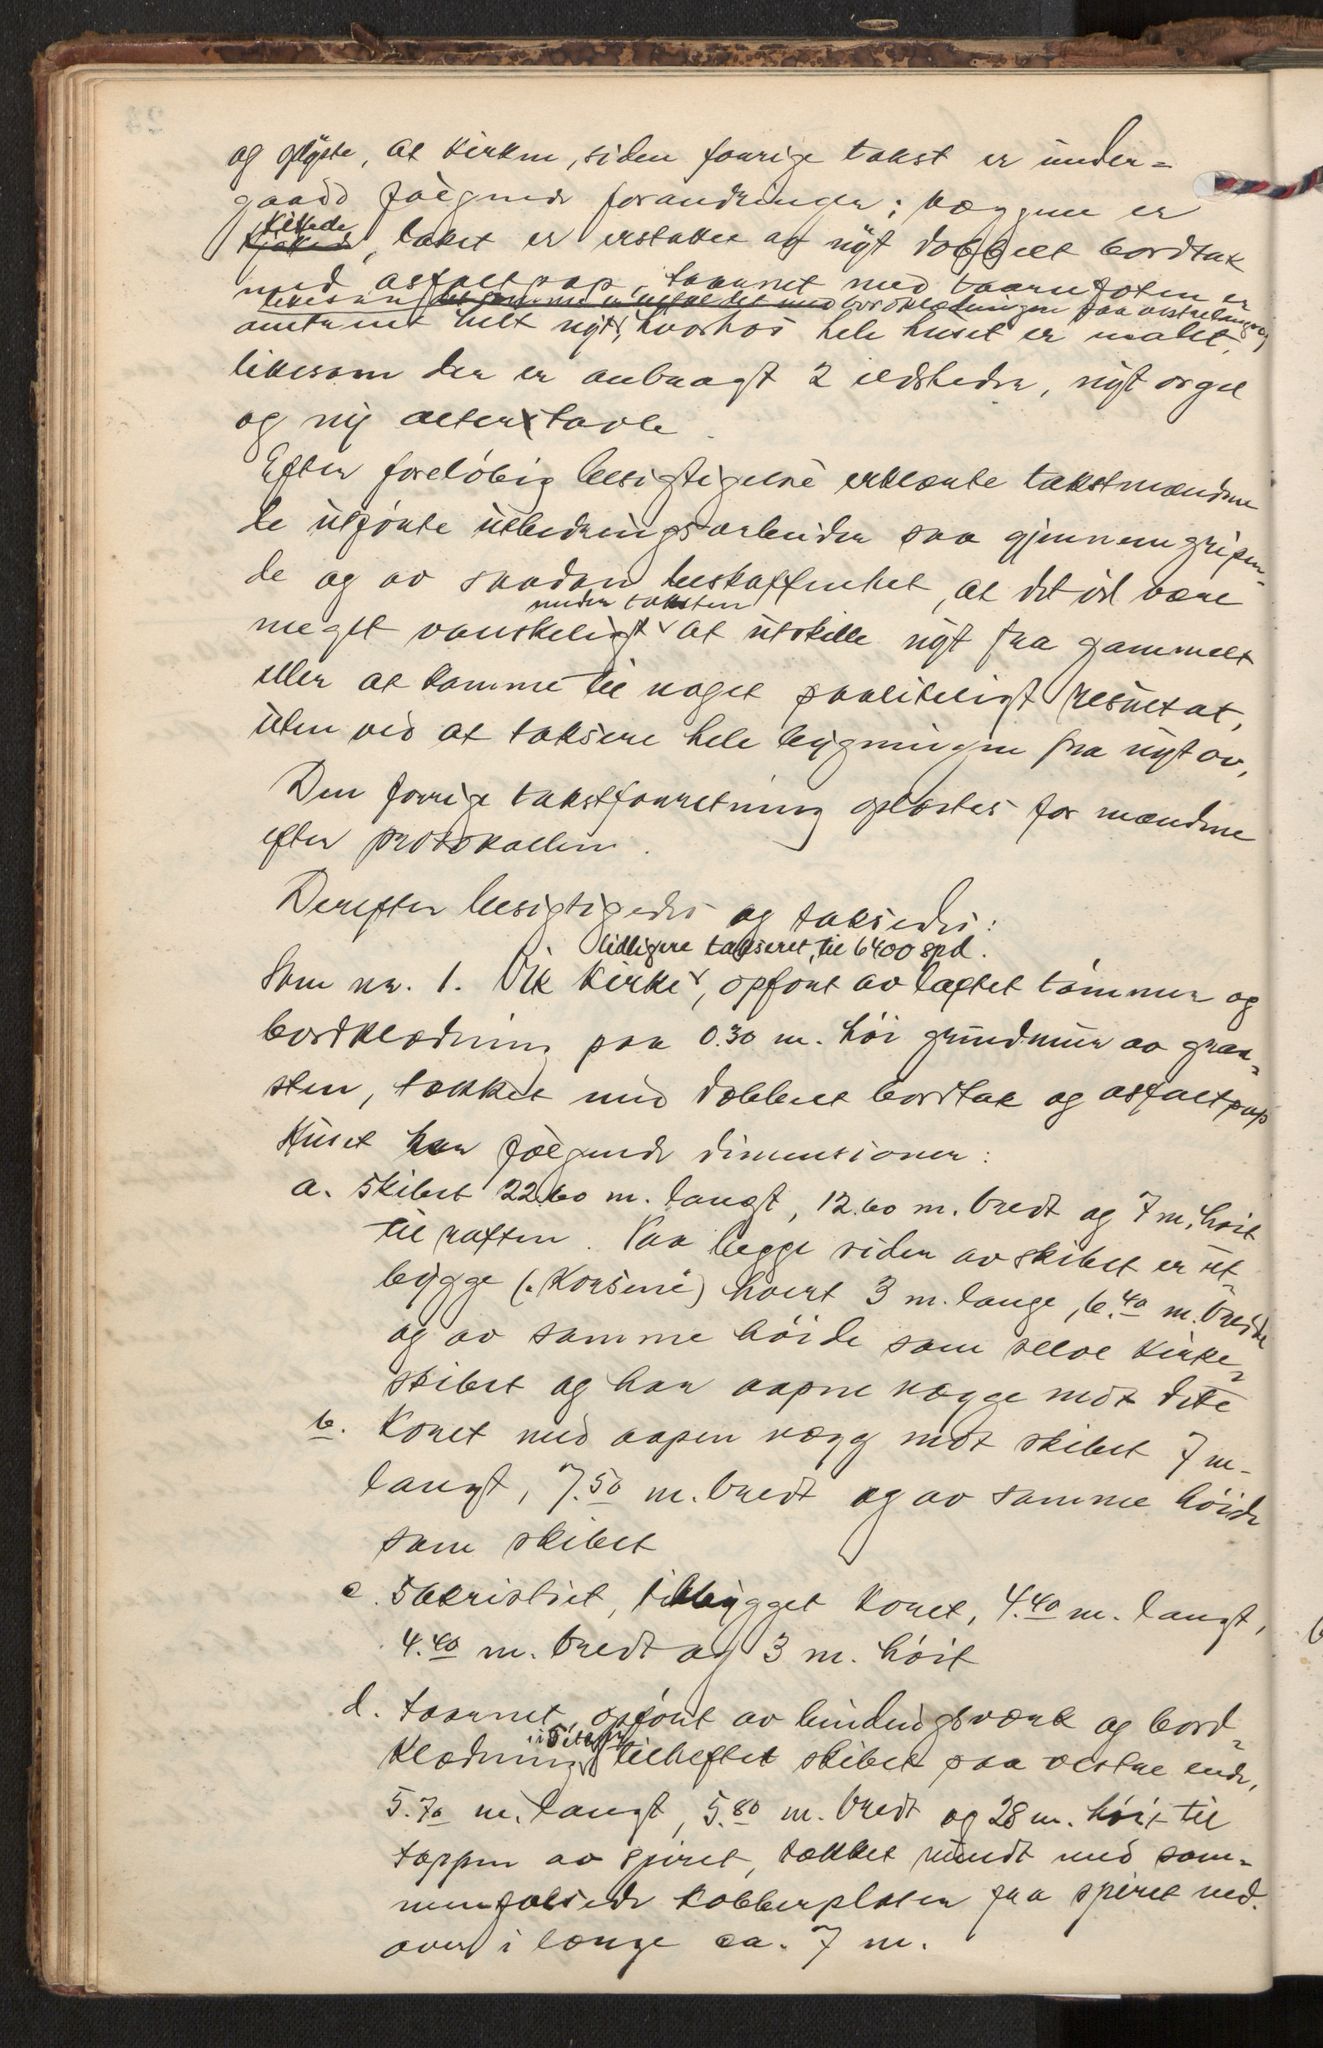 og oplyste, at kirken, siden forrige takst er under-
gaadd følgende forandringer: væggene er
kilede
taket er erstattet av nyt dobbelt bordtak
med asfaltpap, taarnet med taarnfoten er
likesaa bordklædningen paa vestre
omtrent helt nyt, hvorhos hele huset er malet,
likesom der er anbragt 2 ildsteder, nyt orgel
og ny altertavle.
Efter foreløbig besigtigelse erklærte takstmændene
de utførte utbedringsarbeider saa gjennemgripen-
de og av saadan beskaffenhet, at det vil være
under taksten
meget vanskeligt at utskille nyt fra gammelt
eller at komme til noget paaliteligt resultat,
uten ved at taksere hele bygningen fra nyt av.
Den forrige takstforretning oplæstes for mændene
efter protokollen.
Derefter besigtigedes og taksertes:
tidligere taksert til 6400 spd.
Som nr. 1. Vik kirke, opført av laftet tømmer og
bordklædning paa 0.30 m. høi grundmur av graa-
sten, tækket med dobbelt bordtak og asfaltpap
Huset har følgende dimensioner:
a. Skibet 22.60 m. langt, 12.60 m. bredt og 7 m. høit
til raften. Paa begge sider av skibet er ut-
bygge (Korsene) hvert 3 m. lange, 6.40 m. brede
og av samme høide som selve kirke-
skibet og har aapne vægge mot dette
b. Koret med aapen væg mot skibet 7 m.
langt, 7.50 m. bredt og av samme høide
som skibet
c. Sakristiet, tilbygget koret, 4.40 m. langt,
4.40 m. bredt og 3 m. høit
d. Taarnet, opført av bindingsværk og bord-
i 5 etager
klædning tilheftet skibet paa vestre ende,
5.70 m. langt, 5.80 m. bredt og 28 m. høit til
toppen av spiret, tækket rundt med sam-
menfalsede kobberplater fra spiret ned-
over i længe ca. 7 m.